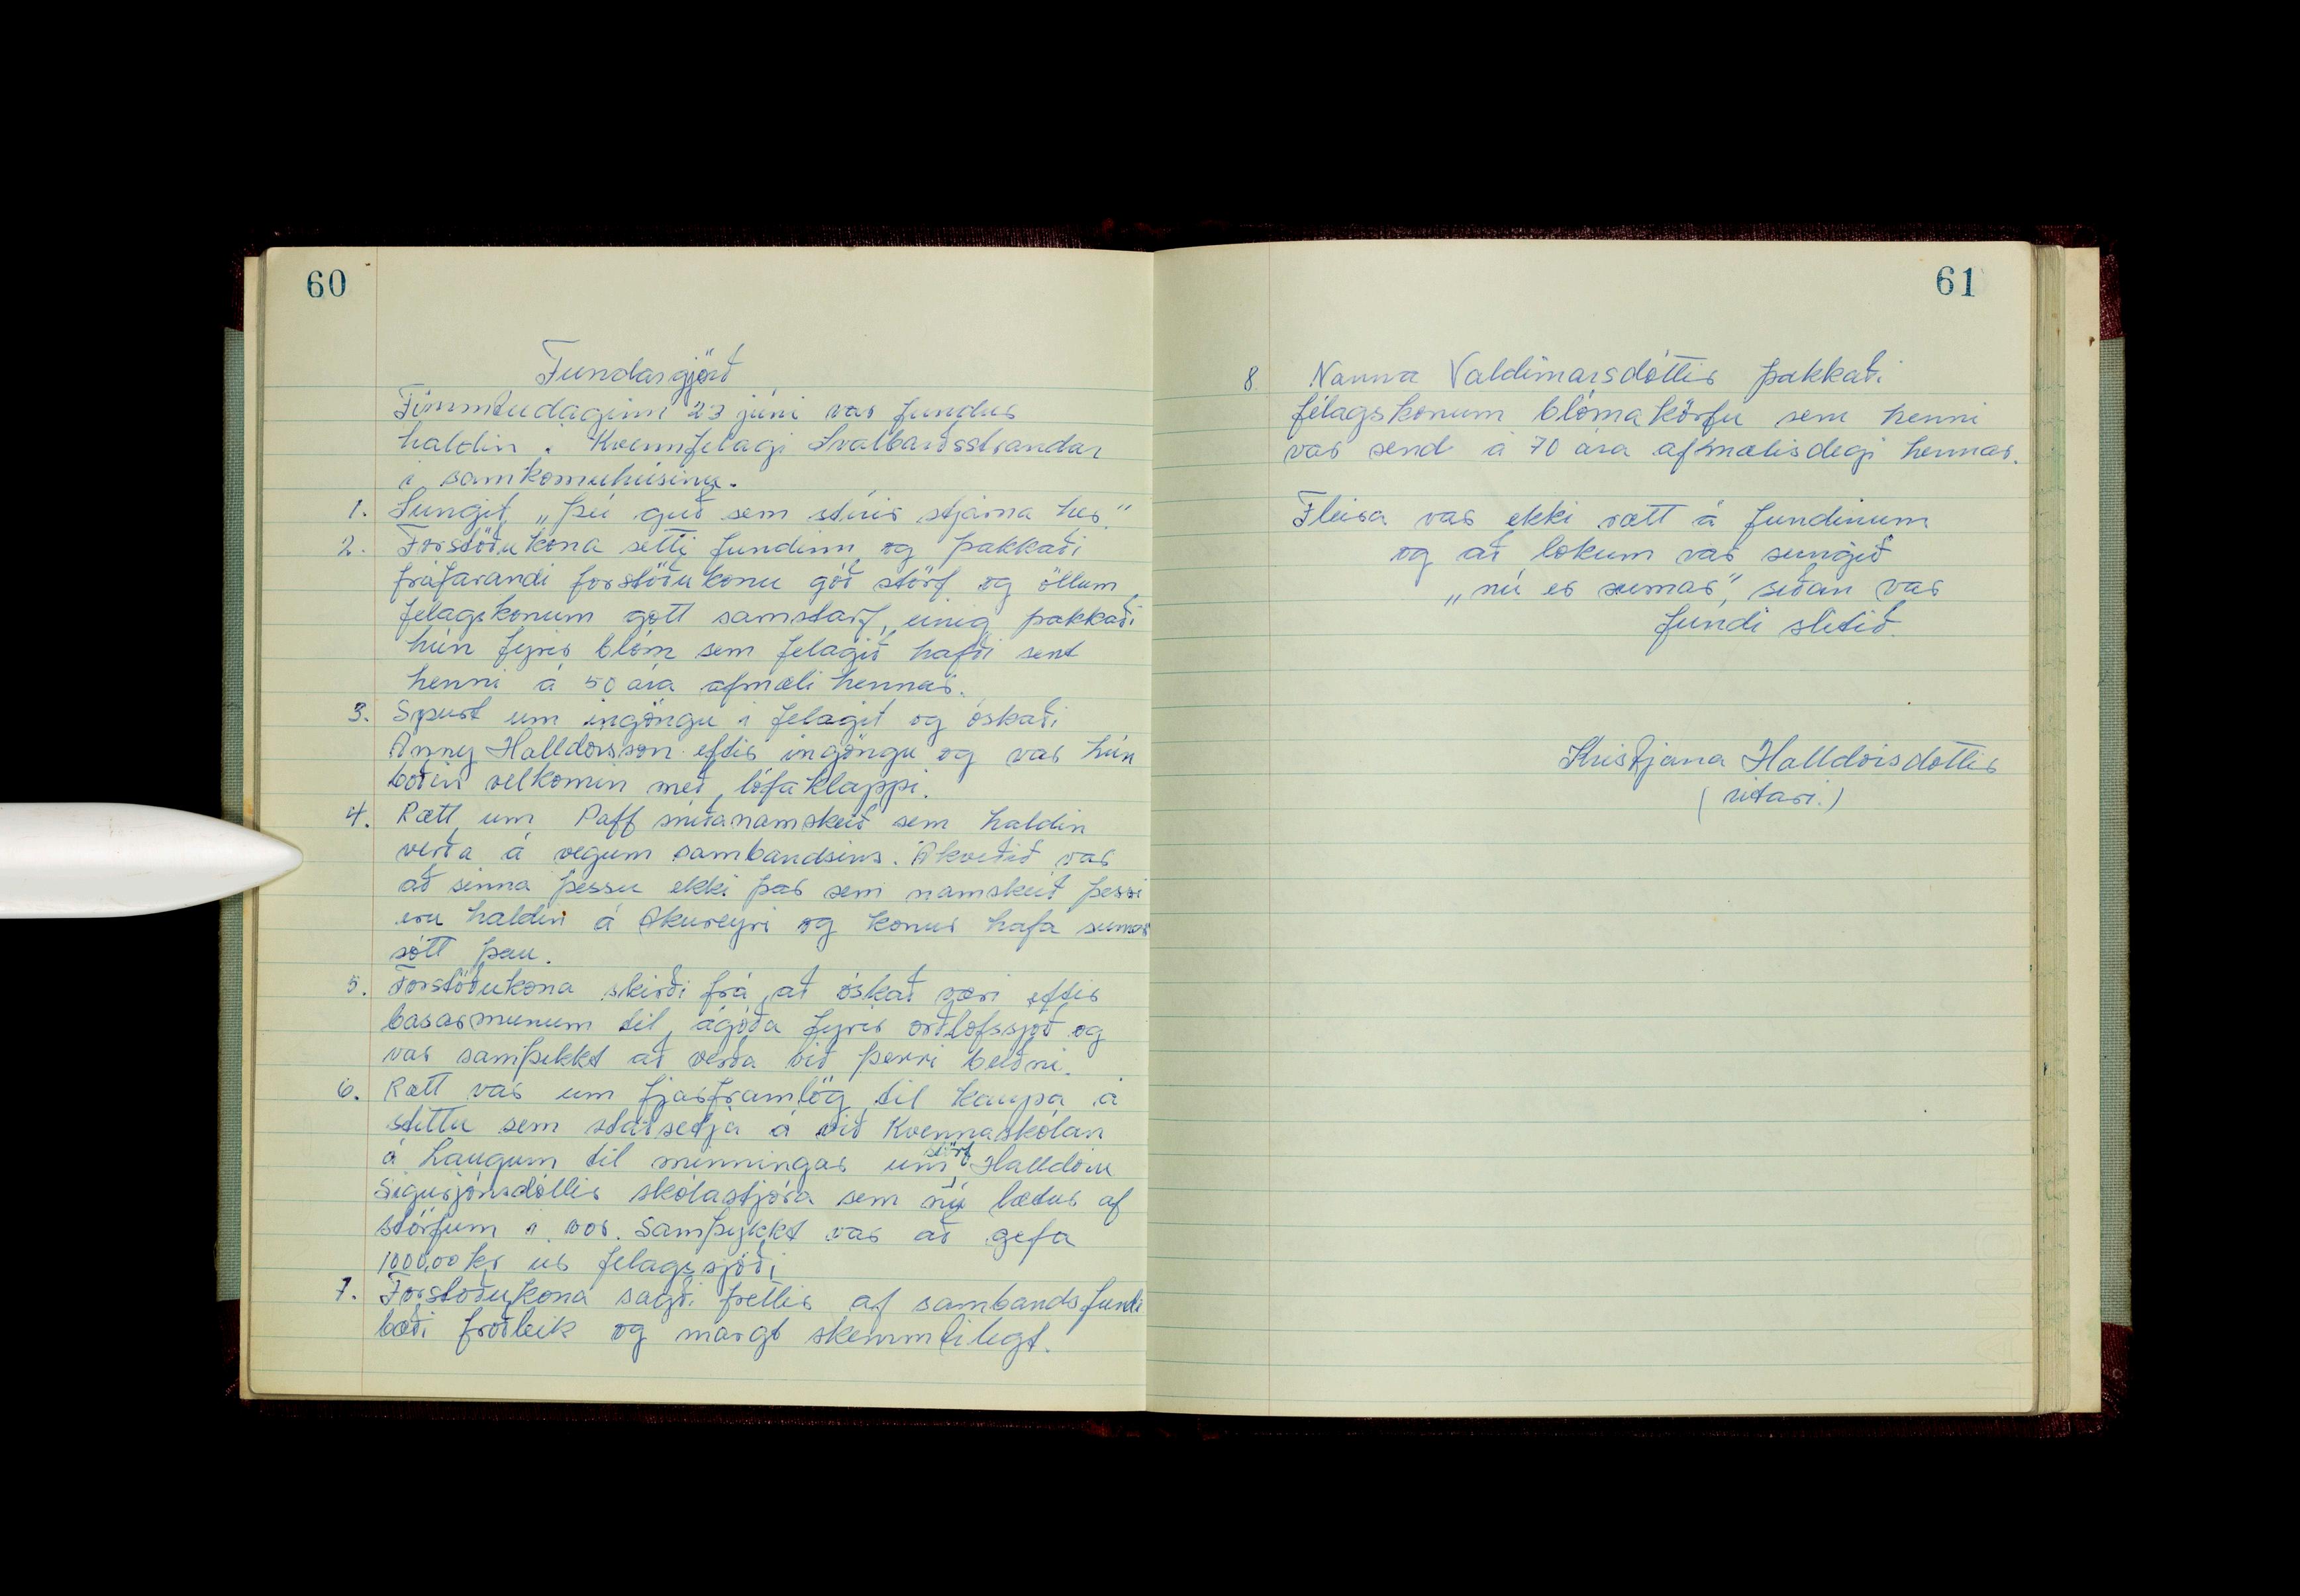 60
Fundargjörð
Fimmtudaginn 23 júni var fundur
haldin i Kvennfelagi Svalbarðsstrandar
i samkomuhúsinu.
1. Sungit „þú guð sem stúrir stjarna her."
2. Forstöðukona setti fundinn og þakkaði
fráfarandi forstöðukonu góð störf og öllum
felagskonum gott samstarf, einig þakkaði
hún fyrir blóm sem felagið hafði sent
henni á 50 ára afmæli hennar.
3. Spurt um ingöngu i felagið og óskaði
Anny Halldorsson eftir ingöngu og var hún
boðin velkomin með lófaklappi.
4. Rætt um Paff sníðanamskeið sem haldin
verða á vegum sambandsins. Ákveðið var
að sinna þessu ekki þar sem namskeið þessi
eru haldin á Akureyri og konur hafa sumar
sótt þau.
5. Forstöðukona skírði frá að óskað væri eftir
basarmunum til ágóða fyrir orðlofssjóð og
var samþikkt að verða við þerri beiðni.
6. Rætt var um fjarframlög til kaupa á
stittu sem staðsetja á við Kvennaskólan
á Laugum til minningar um störf Halldóru
Sigurjónsdóttir skólastjóra sem nú lætur af
störfum i vor. Samþykkt var að gefa
1000,00 kr úr felagssjóði
7. Forstoðukona sagði frettir af sambandsfundi
bæði froðleik og margt skemmtilegt.
61
8. Nanna Valdimarsdóttir þakkaði
félagskonum blómakörfu sem henni
var send á 70 ára afmælisdegi hennar.
Fleira var ekki rætt á fundinum
og að lokum var sungið
„nú er sumar", siðan var
fundi slitið.
Kristjana Halldórsdóttir
(ritari.)